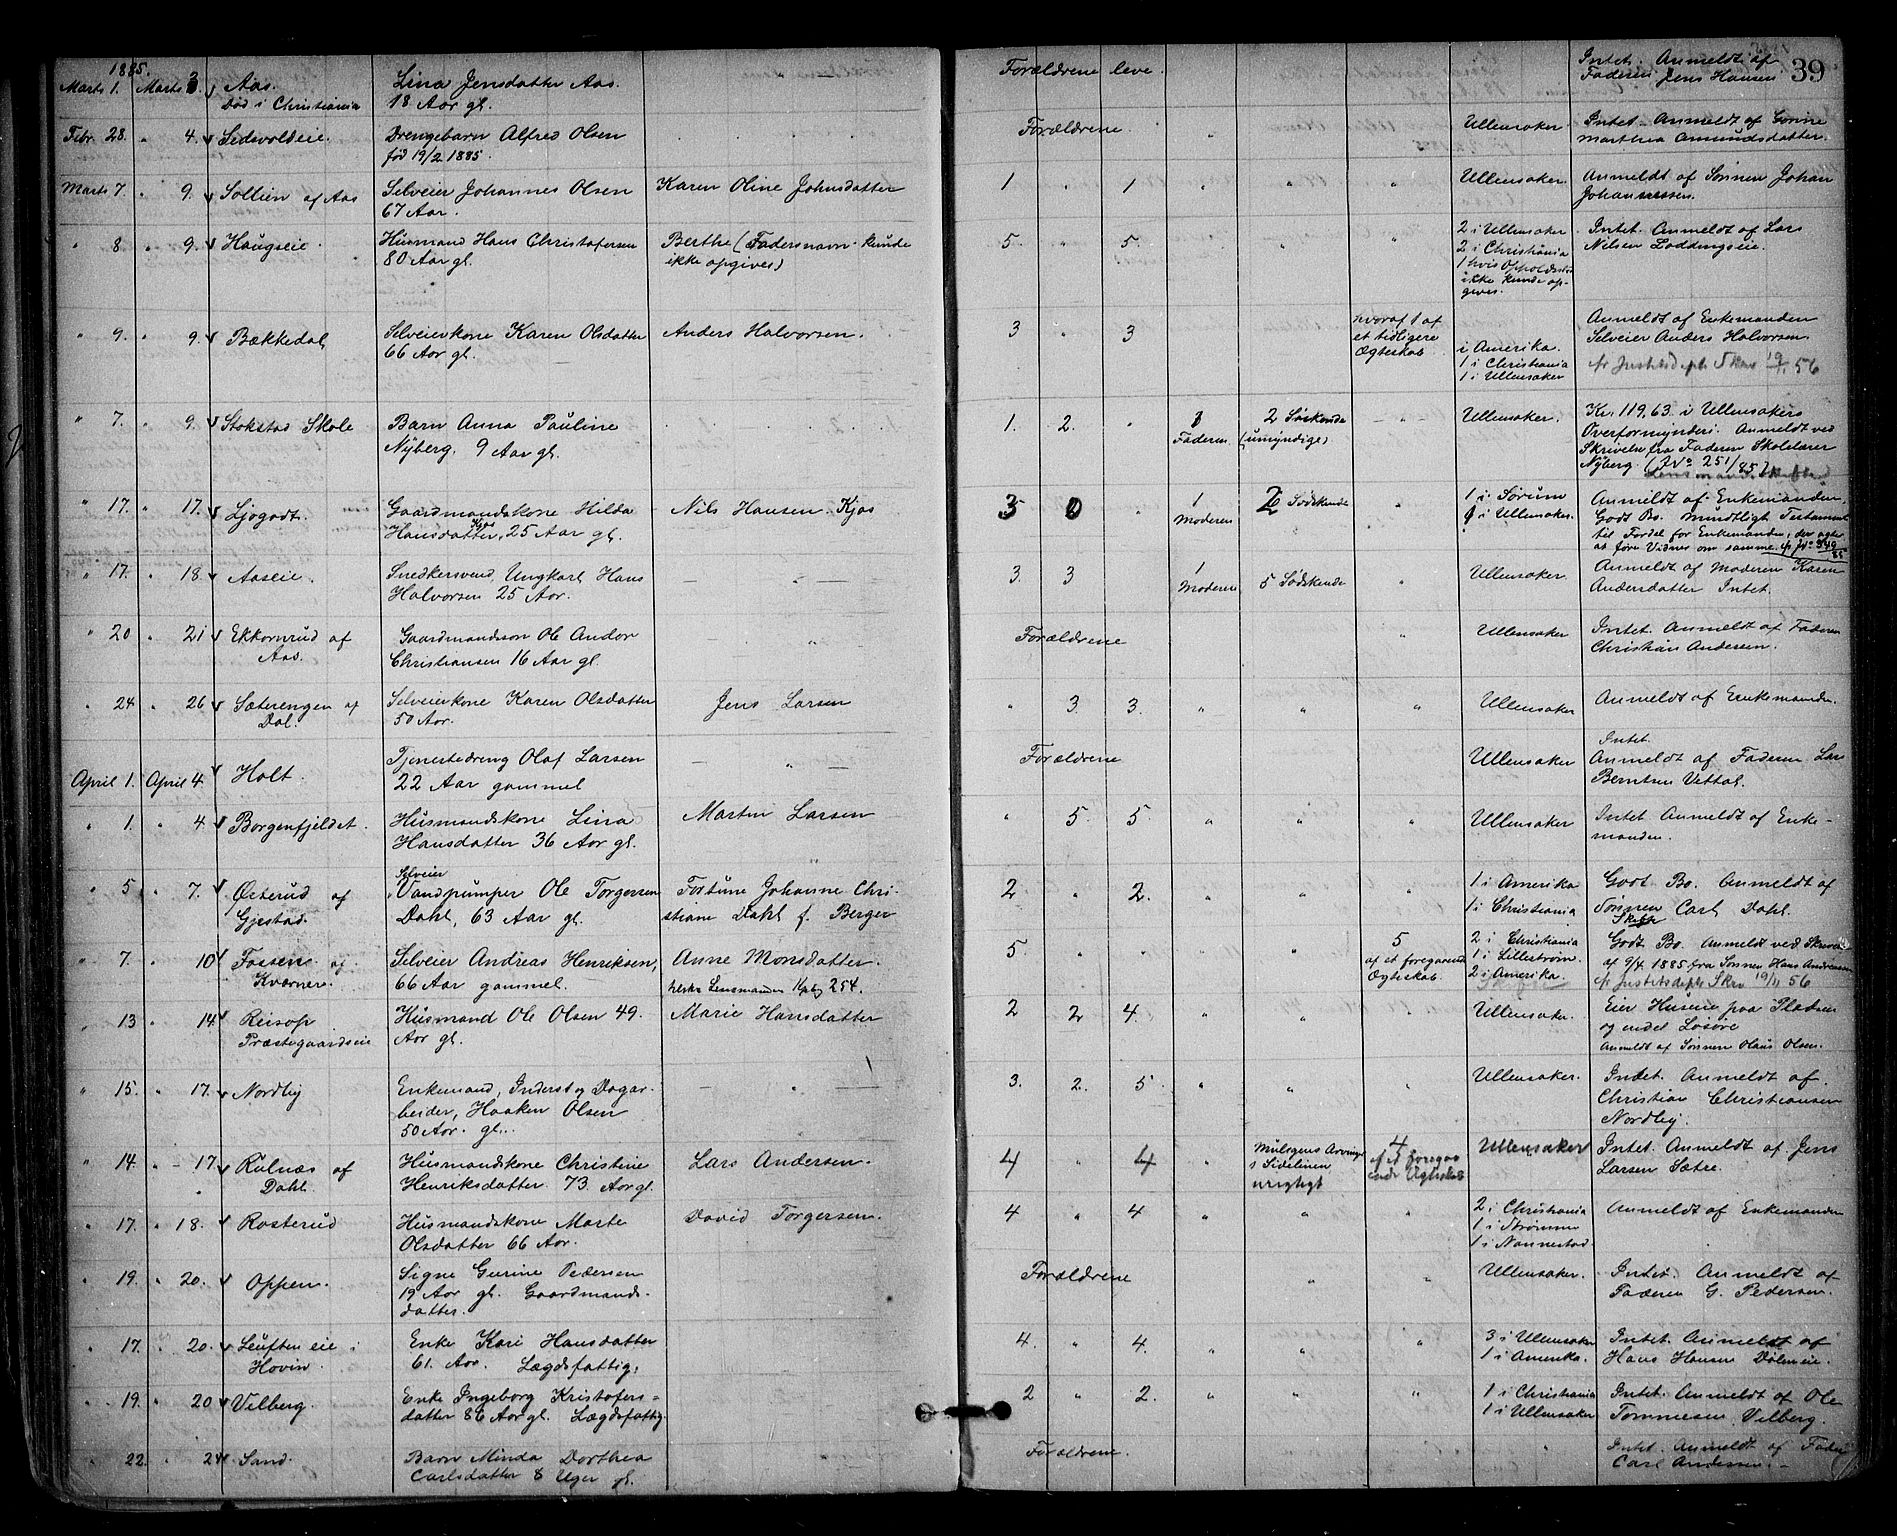 1885.
39
Marts 1. Marts 3 Aas. Lina Jensdatter Aas. Forældrene leve. Intet. Anmeldt af
Død i Christiania 18 Aar gl. Faderen Jens Hansen
Febr. 28. " 4. Sedevoldeie. Drengebarn Alfred Olsen Forældrene. " Ullensaker Intet. Anmeldt af
født 19/2 1885. Marthea Amundsdatter.
Marts 7. " 9. Sollien af Aas Selveier Johannes Olsen Karen Oline Johnsdatter 1 " 1 " " " Ullensaker. Anmeldt af Sønnen Johan
67 Aar. Johannessen.
" 8. " 9. Haugseie. Husmand Hans Christofersen Berthe (Fadersnavn kunde 5. " 5. " " " 2 i Ullensaker Intet. Anmeldt af Lars
80 Aar gl. ikke opgives) 2 i Christiania Nilsen Loddingseie.
1 hvis Opholdssted
ikke kunde op-
gives.
" 9. " 9. Bækkedal Selveierkone Karen Olsdatter Anders Halvorsen. 3 " 3 hvoraf 1 af Anmeldt af Enkemanden
66 Aar gl. et tidligere i Amerika. Selveier Anders Halvorsen
Ægteskab 1 i Christiania jfr Justitsdepts Skr 19/11 56
1 i Ullensaker
" 7. " 9. Stokstad Skole Barn Anna Pauline 1. 2. " 1 2 Søskende Ullensaker. Kr. 119,63 i Ullensakers
Nyberg. 9 Aar gl. Faderen (umyndige) Overformynderi. Anmeldt ved
Skrivelse fra Faderen Skolelærer
Nyberg. (J No 251/85)
" 17. " 17. Ljøgodt. Gaardmandskone Hilda Nils Hansen Kjos 3 0 " 1 2 Sødskende " 1 i Sørum Anmeldt af Enkemanden
Hansdatter Kjos, 25 Aar gl. Moderen i Ullensaker. Godt Bo. Mundtligt Testament
til Fordel for Enkemanden, der agter
at føre Vidner om samme. cfr JNo 349/85
" 17. " 18. Aaseie. Snedkersvend, Ungkarl Hans — " — 3. 3 1 5 Sødskende " Ullensaker. Anmeldt af Moderen Karen
Halvorsen 25 Aar. Moderen Andersdatter Intet.
" 20 " 21 Ekkornrud af Gaardmandssøn Ole Andor — " Forældrene " Ullensaker Intet. Anmeldt af Faderen
Aas. Christiansen 16 Aar gl. Christian Andersen.
" 24. " 26 Sæterengen af Selveierkone Karen Olsdatter Jens Larsen " 3. 3. " " " Ullensaker Anmeldt af Enkemanden.
Dal. 50 Aar.
April 1. April 4. Holt. Tjenestedreng Olaf Larsen — " — Forældrene Ullensaker Intet.
22 Aar gammel Anmeldt af Faderen Lars
Berntsen Vettal.
" 1. " 4. Borgenfjeldet. Husmandskone Lina Martin Larsen " 5. 5. " " " Ullensaker Intet. Anmeldt af Enke-
Hansdatter 36 Aar gl. manden.
" 5 " 7. Østerud af Selveier Vandpumper Ole Torgersen Fortune Johanne Chri- 2 " 2. " " " 1 i Amerika Godt Bo. Anmeldt af
Gjestad. Dahl, 63 Aar gl. stiane Dahl f. Berger 1 i Christiania Sønnen Carl Dahl.
" 7. " 10 Fossen af Selveier Andreas Henriksen, Anne Monsdatter. 5. " " " " 5 2 i Christiania Godt Bo. Anmeldt ved Skrivelse
Kværner. 66 Aar gammel. Lensmanden 254. af et foregaaende 1 i Lillestrøm. af 9/4 1885 fra Sønnen Hans Andreasen
Ægteskab. 2 i Amerika. jfr Justitsdepts Skr 19/11 56
" 13 " 14 Reisop Husmand Ole Olsen 49. Marie Hansdatter 2 2 4. " " " Ullensaker. Eier Husene paa Pladsen
Præstegaardseie Aar gl. og endel Løsøre
Anmeldt af Sønnen Olaus Olsen.
" 15. " 17. Nordby Enkemand, Inderst og Dagar- — " — 3. 2. 5. " " " Ullensaker. Intet. Anmeldt af
beider, Haaken Olsen Christian Christiansen
50 Aar. gl. Nordby.
" 14. " 17. Rulnæs af Husmandskone Christine Lars Andersen. 4 " 4 " Mulgens Arvinger 4 Ullensaker Intet. Anmeldt af Jens
Dahl. Henriksdatter 73 Aar gl. i Sidelinien af et foregaa- Larsen Sætre.
urigtigt ende Ægteskab
" 17. " 18. Rosterud Husmandskone Marte David Torgersen. 4 " 4 " " " 2 i Christiania Anmeldt af Enkemanden
Olsdatter 66 Aar. 1 i Strømmen
1 i Nannestad.
" 19. " 20. Oppen. Signe Gurine Pedersen Forældrene " " Ullensaker. Intet. Anmeldt af
19 Aar gl. Gaardmands- Faderen G. Pedersen.
datter.
" 17. " 20. Leuften eie i Enke Kari Hansdatter 4. " 4. " " " 3 i Ullensaker Intet. Anmeldt af
Hovin. 61. Aar. Lægdsfattig. 1 i Amerika. Hans Hansen Dølneie.
" 19. " 20 Vilberg. Enke Ingeborg Kristofers- 2 " 2. " " " 1 i Christiania Intet. Anmeldt af Ole
datter 86 Aar gl. Lægdsfattig. 1 i Ullensaker Tommesen Vilberg.
" 22. " 24 Sand. Barn Minda Dorthea Forældrene. " Intet. Anmeldt af Fader
Carlsdatter 8 Uger gl. Carl Andersen.